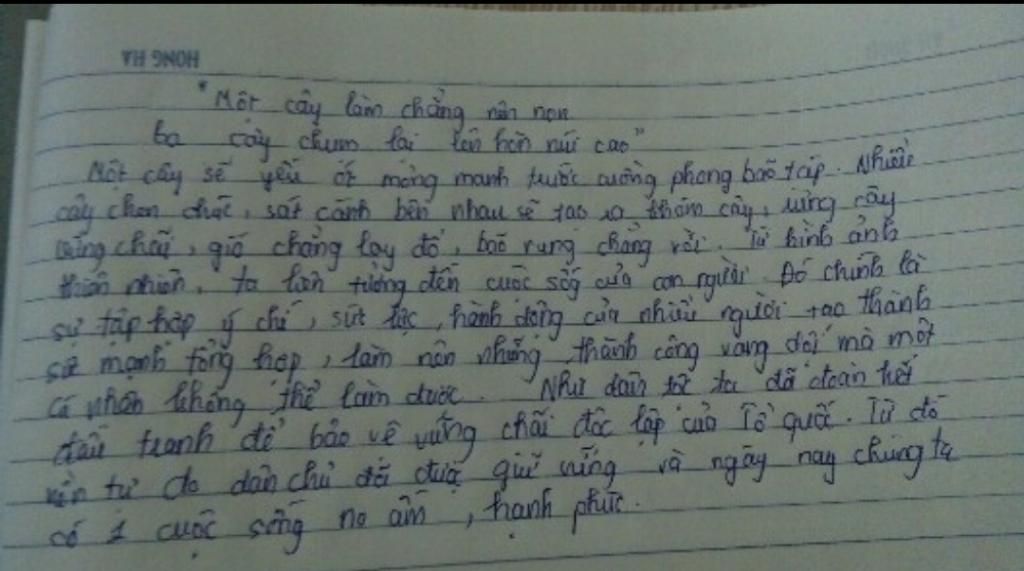 HONG HA
"Một cây làm chẳng nên non
ba cây chụm lại lên hòn núi cao"
Một cây sẽ yếu ớt mỏng manh trước cuồng phong bão táp. Nhiều
cây chen chúc, sát cánh bên nhau sẽ tạo ra thảm cây, rừng cây
vững chãi, gió chẳng lay đổ, bão rung chẳng rời. Từ hình ảnh
thiên nhiên, ta liên tưởng đến cuộc sống của con người. Đó chính là
sự tập hợp ý chí, sức lực, hành động của nhiều người tạo thành
sức mạnh tổng hợp, làm nên những thành công vang dội mà một
cá nhân không thể làm được. Như dân tộc ta đã đoàn kết
đấu tranh để bảo vệ vững chãi độc lập của Tổ quốc. Từ đó
nền tự do dân chủ đã được giữ vững và ngày nay chúng ta
có 1 cuộc sống no ấm, hạnh phúc.